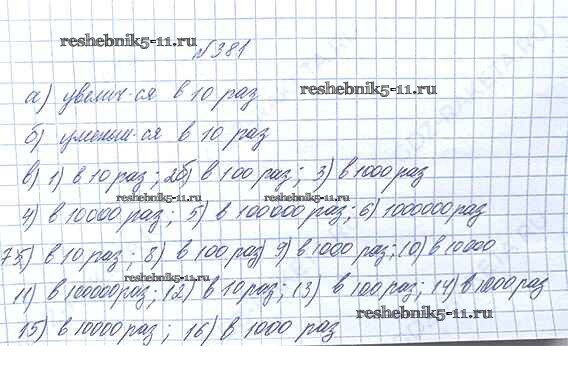 reshebnik5-11.ru
№381
а) увелич-ся в 10 раз
reshebnik5-11.ru
б) уменьш-ся в 10 раз
в) 1) в 10 раз; 2б) в 100 раз; 3) в 1000 раз
reshebnik5-11.ru
4) в 10000 раз; 5) в 100000 раз; 6) 1000000 раз
7) в 10 раз; 8) в 100 раз 9) в 1000 раз; 10) в 10000
reshebnik5-11.ru
11) в 100000 раз; 12) в 10 раз; 13) в 100 раз; 14) в 1000 раз
reshebnik5-11.ru
15) в 10000 раз; 16) в 1000 раз